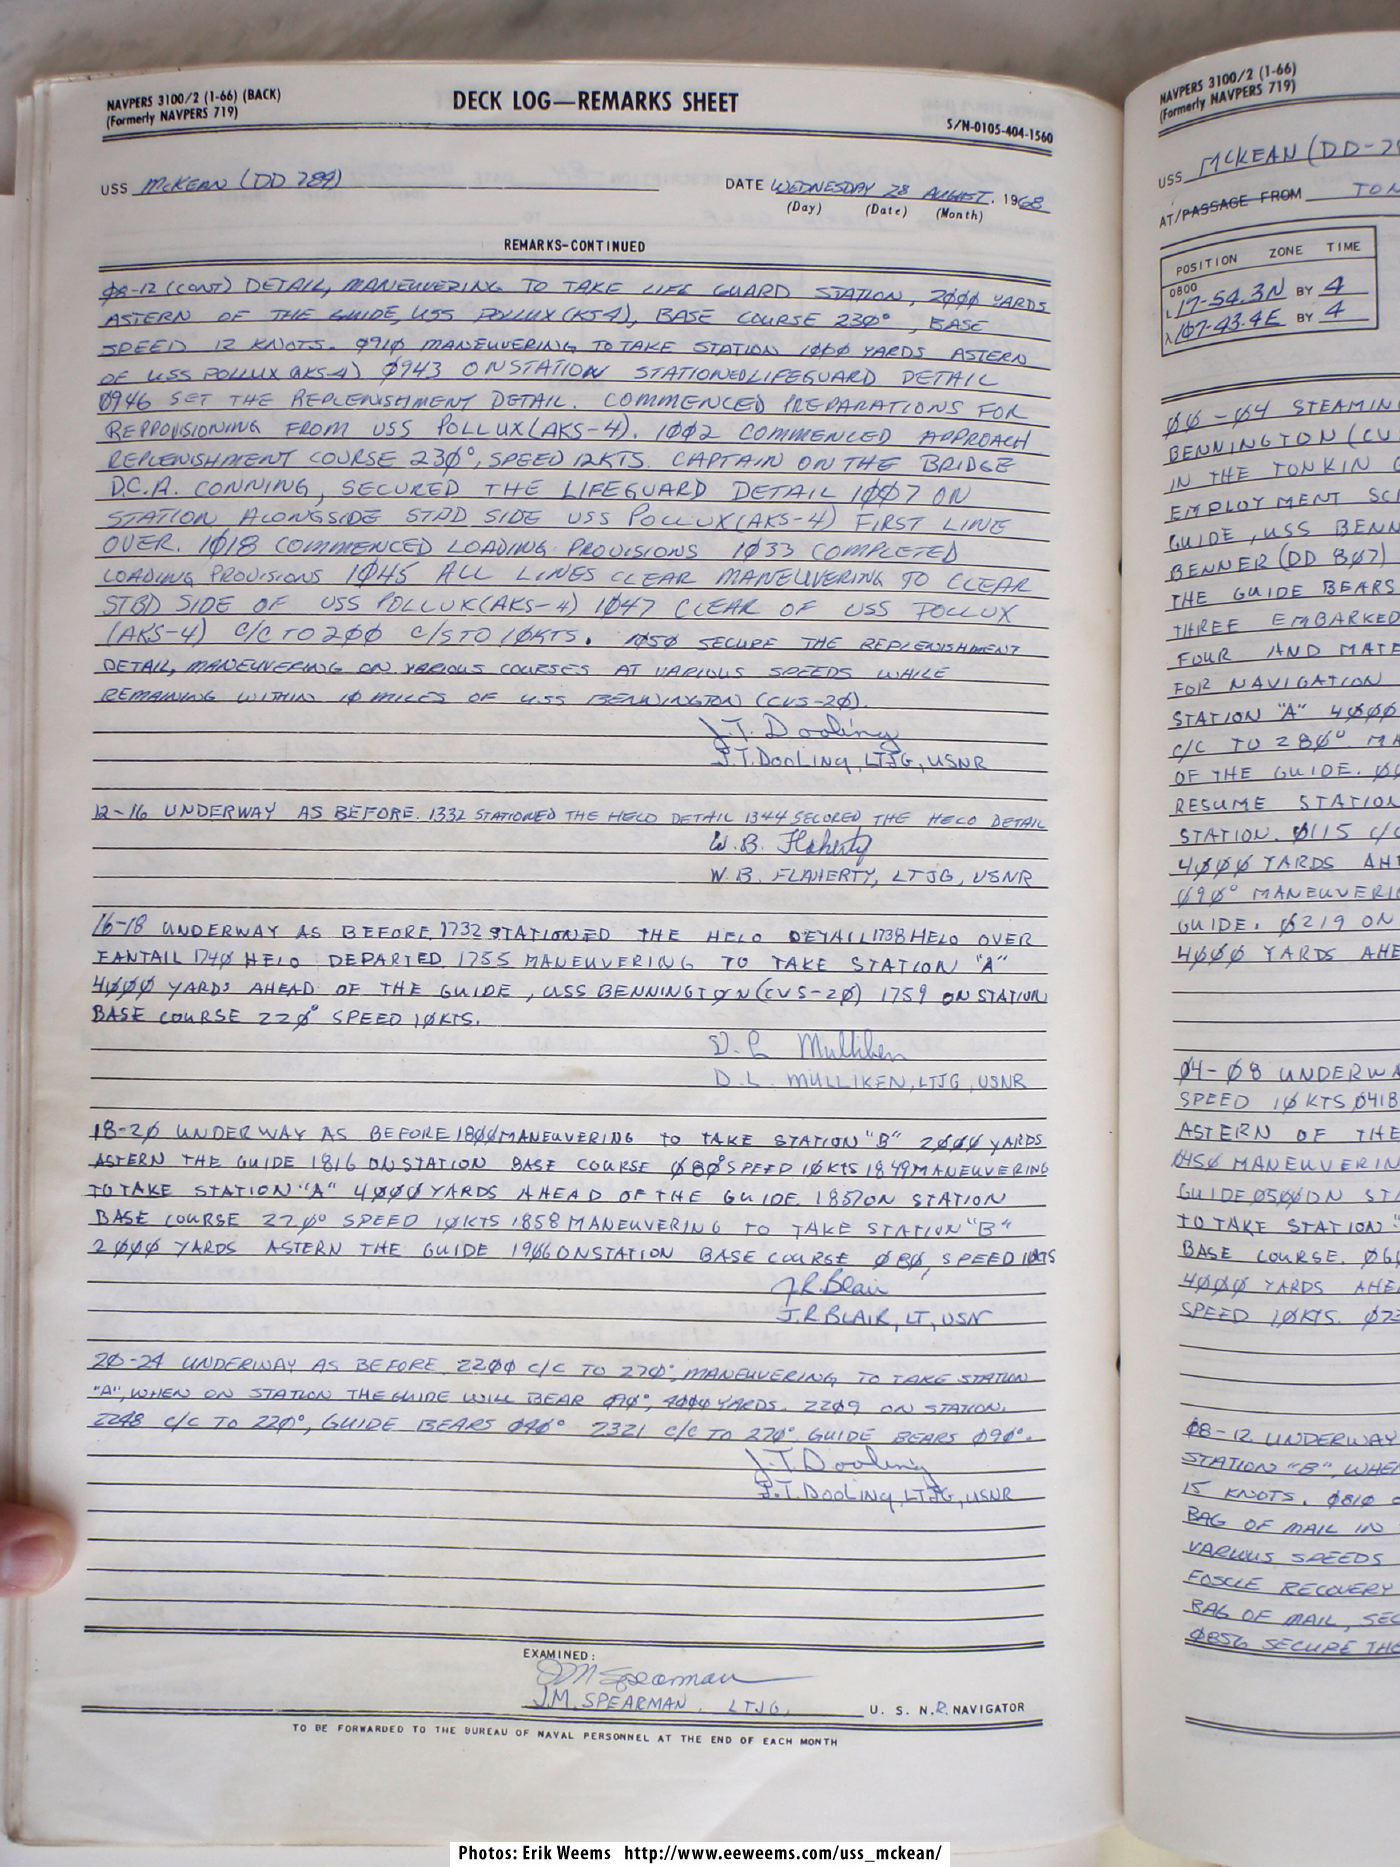 NAVPERS 3100/2 (1-66) (BACK)
(Formerly NAVPERS 719)
DECK LOG—REMARKS SHEET
S/N-0105-404-1560
USS McKEAN (DD 784)
DATE WEDNESDAY 28 AUGUST, 1968
(Day) (Date) (Month)
REMARKS-CONTINUED
Ø8-12 (CONT) DETAIL, MANEUVERING TO TAKE LIFE GUARD STATION, 2ØØØ YARDS
ASTERN OF THE GUIDE, USS POLLUX (KS4), BASE COURSE 23Ø°, BASE
SPEED 12 KNOTS. Ø91Ø MANEUVERING TO TAKE STATION 1ØØØ YARDS ASTERN
OF USS POLLUX (AKS-4) Ø943 ON STATION STATIONED LIFEGUARD DETAIL
Ø946 SET THE REPLENISHMENT DETAIL. COMMENCED PREPARATIONS FOR
REPROVISIONING FROM USS POLLUX (AKS-4). 1ØØ2 COMMENCED APPROACH
REPLENISHMENT COURSE 23Ø°, SPEED 12KTS. CAPTAIN ON THE BRIDGE
D.C.A. CONNING, SECURED THE LIFEGUARD DETAIL 1ØØ7 ON
STATION ALONGSIDE STBD SIDE USS POLLUX (AKS-4) FIRST LINE
OVER. 1Ø18 COMMENCED LOADING PROVISIONS 1Ø33 COMPLETED
LOADING PROVISIONS 1Ø45 ALL LINES CLEAR MANEUVERING TO CLEAR
STBD SIDE OF USS POLLUX (AKS-4) 1Ø47 CLEAR OF USS POLLUX
(AKS-4) C/C TO 2ØØ C/S TO 1ØKTS. 1Ø5Ø SECURE THE REPLENISHMENT
DETAIL, MANEUVERING ON VARIOUS COURSES AT VARIOUS SPEEDS WHILE
REMAINING WITHIN 1Ø MILES OF USS BENNINGTON (CVS-2Ø).
J.T. Dooling
J.T. DOOLING, LTJG, USNR
12-16 UNDERWAY AS BEFORE. 1332 STATIONED THE HELO DETAIL 1344 SECURED THE HELO DETAIL
W. B. Flaherty
W. B. FLAHERTY, LTJG, USNR
16-18 UNDERWAY AS BEFORE. 1732 STATIONED THE HELO DETAIL 1738 HELO OVER
FANTAIL 174Ø HELO DEPARTED 1755 MANEUVERING TO TAKE STATION "A"
4ØØØ YARDS AHEAD OF THE GUIDE, USS BENNINGTON (CVS-2Ø) 1759 ON STATION
BASE COURSE 22Ø° SPEED 1ØKTS.
D. L. Mulliken
D. L. MULLIKEN, LTJG, USNR
18-2Ø UNDERWAY AS BEFORE 18ØØ MANEUVERING TO TAKE STATION "B" 2ØØØ YARDS
ASTERN THE GUIDE 1816 ON STATION BASE COURSE Ø8Ø° SPEED 1ØKTS 1849 MANEUVERING
TO TAKE STATION "A" 4ØØØ YARDS AHEAD OF THE GUIDE. 1857 ON STATION
BASE COURSE 22Ø° SPEED 1ØKTS 1858 MANEUVERING TO TAKE STATION "B"
2ØØØ YARDS ASTERN THE GUIDE 19Ø6 ON STATION BASE COURSE Ø8Ø, SPEED 1ØKTS
J.R. Blair
J.R. BLAIR, LT, USN
2Ø-24 UNDERWAY AS BEFORE. 22ØØ C/C TO 27Ø°, MANEUVERING TO TAKE STATION
"A", WHEN ON STATION THE GUIDE WILL BEAR Ø9Ø°, 4ØØØ YARDS. 22Ø9 ON STATION.
2248 C/C TO 22Ø°, GUIDE BEARS Ø4Ø° 2321 C/C TO 27Ø° GUIDE BEARS Ø9Ø°.
J.T. Dooling
J.T. DOOLING, LTJG, USNR
EXAMINED:
J M Spearman
J.M. SPEARMAN, LTJG, U. S. N.R. NAVIGATOR
TO BE FORWARDED TO THE BUREAU OF NAVAL PERSONNEL AT THE END OF EACH MONTH
NAVPERS 3100/2 (1-66)
(Formerly NAVPERS 719)
USS McKEAN (DD-78
AT/PASSAGE FROM TON
POSITION ZONE TIME
0800
L 17-54.3N BY 4
λ 107-43.4E BY 4
ØØ-Ø4 STEAMIN
BENNINGTON (CVS
IN THE TONKIN G
EMPLOYMENT SC
GUIDE, USS BENN
BENNER (DD 8Ø7)
THE GUIDE BEARS
THREE EMBARKED
FOUR AND MATE
FOR NAVIGATION
STATION "A" 4ØØØ
C/C TO 28Ø° MA
OF THE GUIDE.
RESUME STATION
STATION. Ø115 C/C
4ØØØ YARDS AH
Ø9Ø° MANEUVERI
GUIDE. Ø219 ON
4ØØØ YARDS AHE
Ø4-Ø8 UNDERWA
SPEED 1Ø KTS Ø418
ASTERN OF THE
Ø45Ø MANEUVERIN
GUIDE Ø5ØØ ON ST
TO TAKE STATION "
BASE COURSE.
4ØØØ YARDS AHE
SPEED 1ØKTS.
Ø8-12 UNDERWAY
STATION "B", WHE
15 KNOTS. Ø81Ø
BAG OF MAIL IN
VARIOUS SPEEDS
FOSCLE RECOVERY
BAG OF MAIL, SEC
Ø856 SECURE THE
Photos: Erik Weems http://www.eeweems.com/uss_mckean/